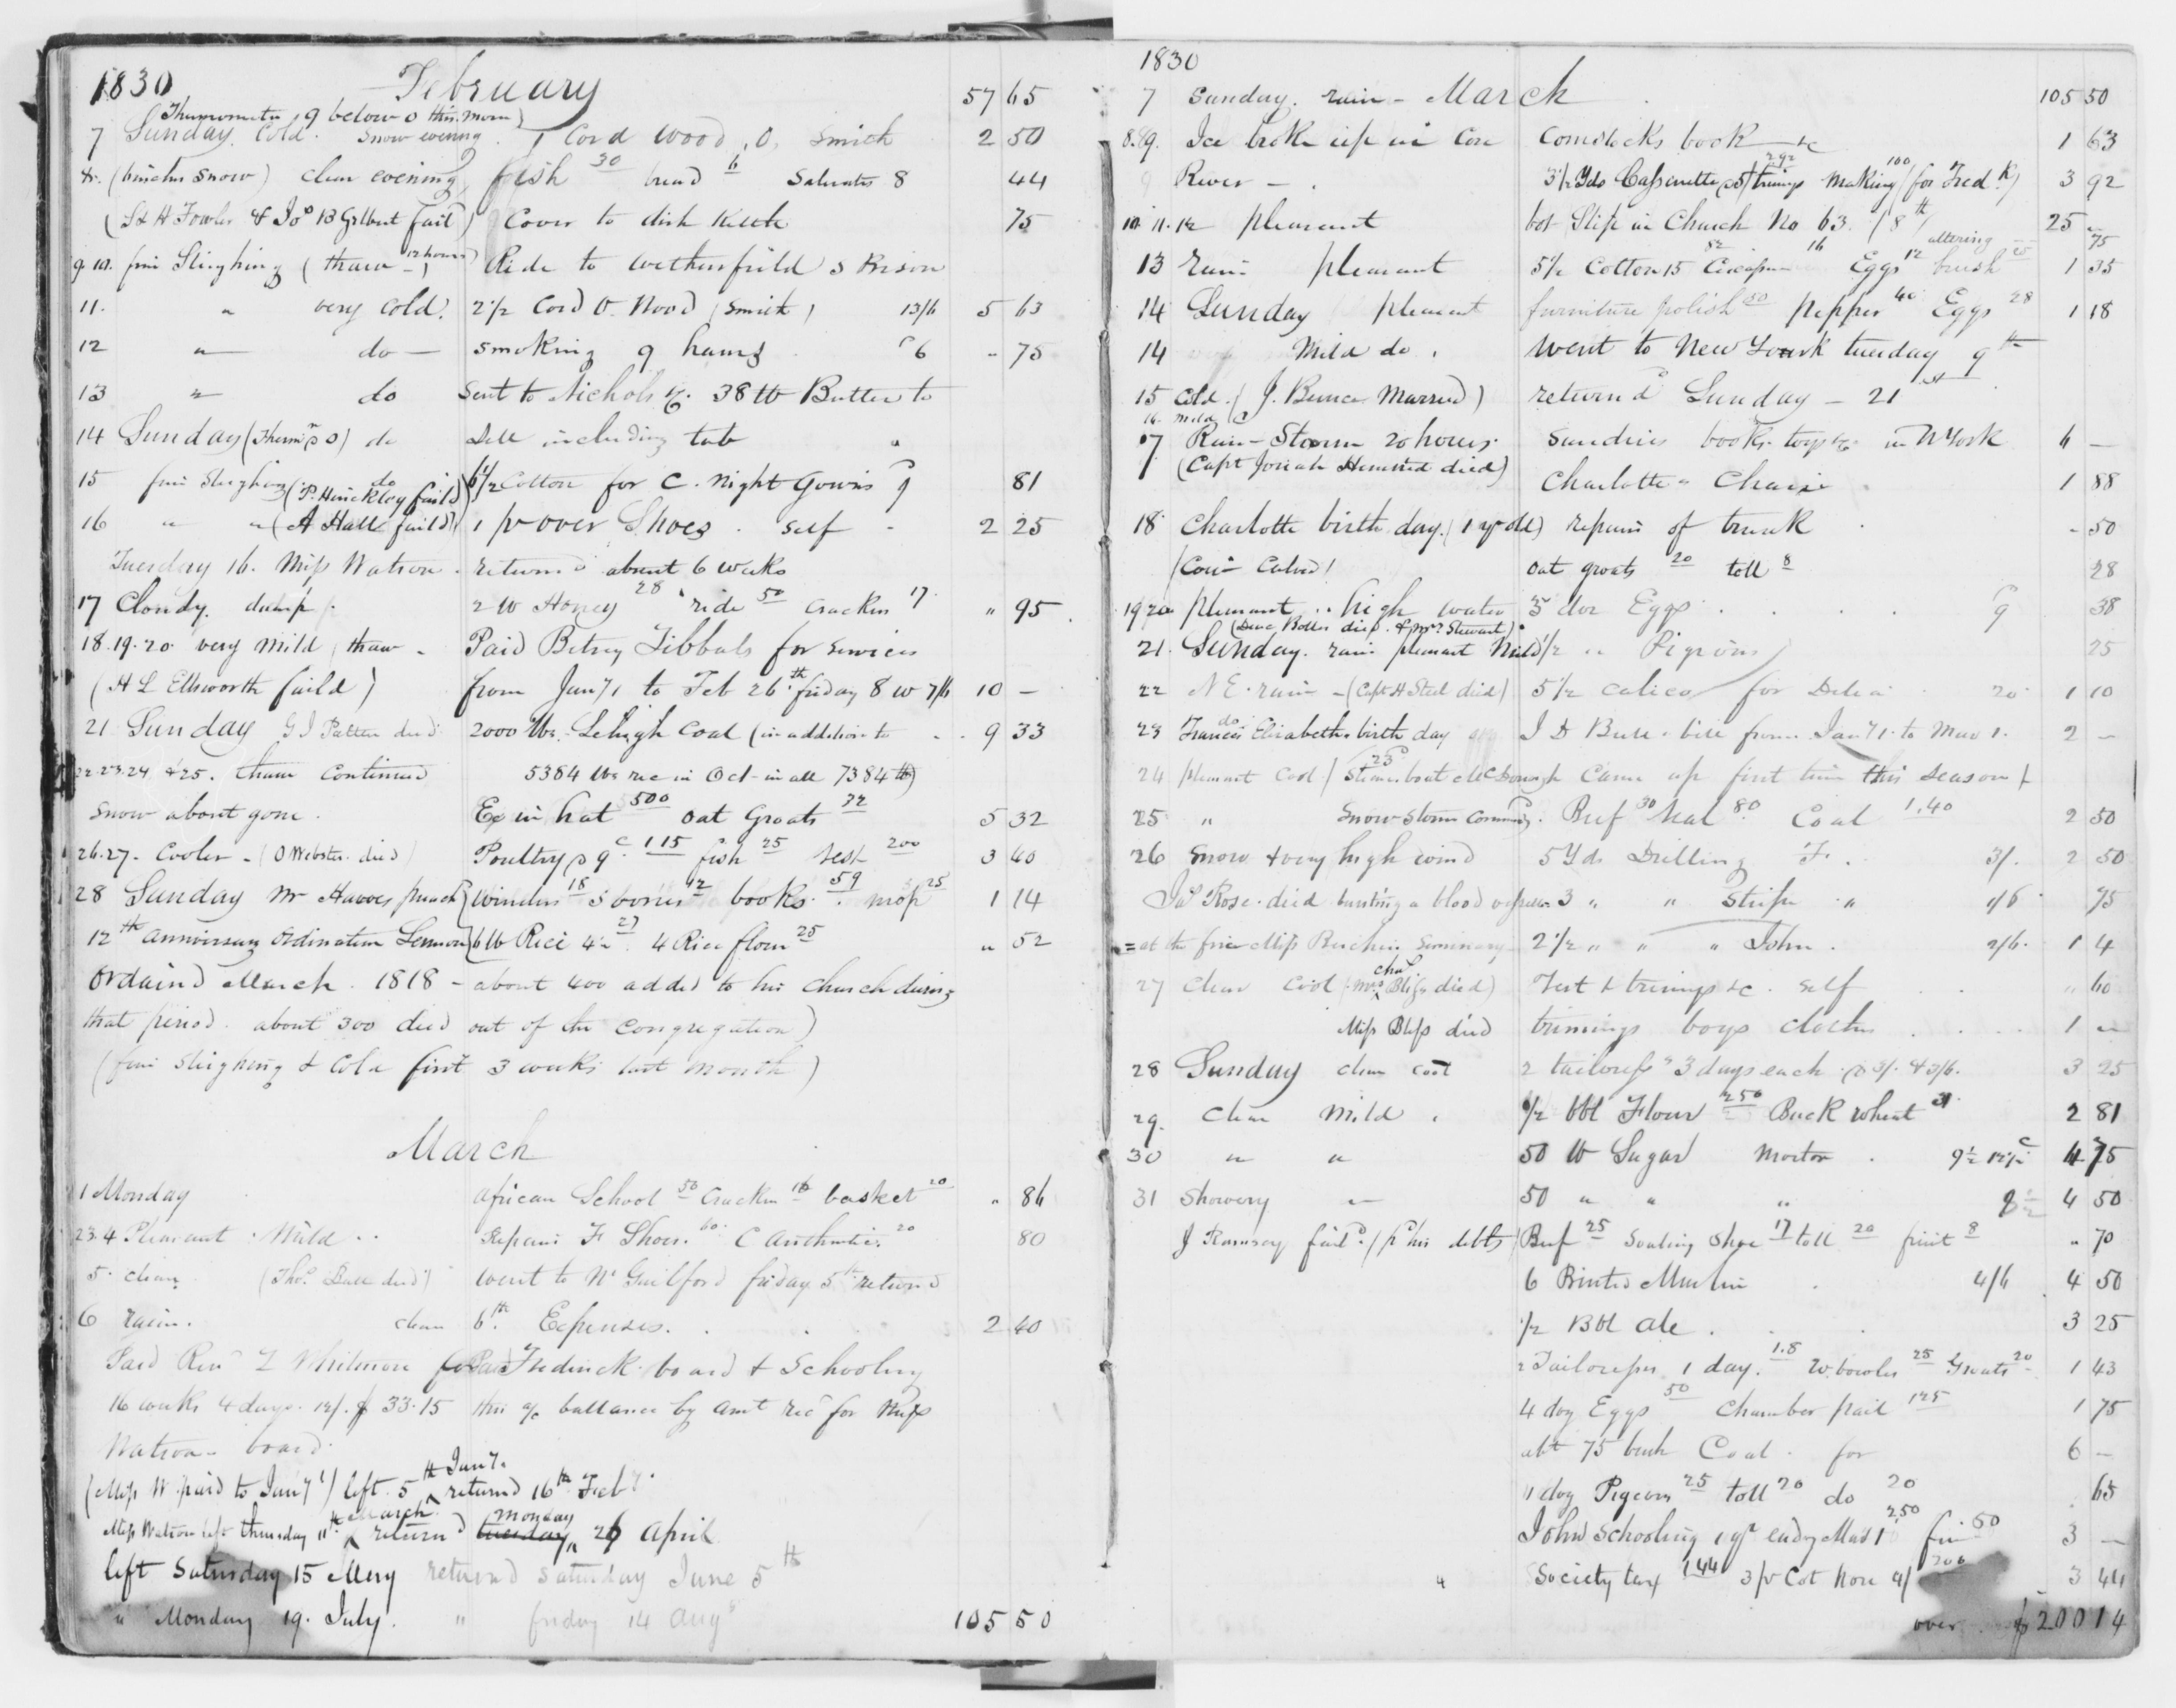 1830 February 57 65
Thermometer 9 below 0 this morn)
7 Sunday. Cold. Snow evening. 1 Cord Wood, O, Smith 2 50
8. (6 inches snow) clear evening, fish 30 bread 6 Saleratus 8 44
(S & H Fowler & Jos B Gilbert fail'd) Cover to dish Kettle 75
9. 10. fine Sleighing (thaw 12 hours) Ride to Wethersfield S Prison
11. " very cold. 2 1/2 Cord O. Wood (Smith) 13/6 5 63
12 " do smoking 9 hams 6 - 75
13 " do Sent to Nichols &c. 38 lb Butter to
14 Sunday (Therm 0) do Sell including tub "
15 fine Sleighing do 6 1/2 Cotton for C. night Gowns 81
(P. Hinckley faild)
16 " " (A Hall faild) 1 pr over Shoes. self - 2 25
Tuesday 16. Miss Watson. returnd absent 6 weeks
17 Cloudy. damp. 2 lb Honey 28 ride 50 Crackers 17 " 95
18. 19. 20 very mild, thaw - Paid Betsey Tibbals for services
(H L Ellsworth faild) from Jany 1 to Feb 26th friday 8 w 7/6 10 —
21 Sunday G J Patten died 2000 lbs. Lehigh Coal (in addition to 9 33
22. 23. 24 & 25. thaw continued 5384 lbs rec in Oct - in all 7384 lb)
snow about gone. Ex in hat 500 Oat Groats 32 5 32
26. 27. Cooler - (O Webster. died) Poultry 9c 115 fish 25 200 3 40
28 Sunday Mr Hawes preachd 18 12 books 59 mop 25 1 14
12th anniversary Ordination Sermon 6 lb Rice 27 4 Rice flour 25 " 52
Ordaind March. 1818 - about 400 added to his Church during
that period. about 300 died out of the Congregation)
(fine Sleighing & Cold first 3 weeks last month)
March
1 Monday African School 50 Crackers 16 basket 20 " 86
2 3. 4 Pleasant. Mild .. Repairs F Shoes. 60 C 20 80
5. clear (Thos. Bull died) Went to N Guilford friday 5th returnd
6 rain. clear 6th. Expenses. 2 40
Paid Revd Z Whitmore for Frederick board & Schooling
16 weeks 4 days. 12/. $ 33.15 this a/c ballance by amt recd for Miss
Watson board.
(Miss W. paid to Jany 1) left 5th Jany. returnd 16th Feby.
Miss Watson left thursday 11th March returnd tuesday Monday 26 April
left Saturday 15 May returnd Saturday June 5th
" Monday 19. July. " friday 14 Augt 105 50
1830
7 Sunday. rain - March 105 50
8. & 9. Ice broke up in Con Comstocks book &c 1 63
9 River - . 3 1/2 Yds Cassinette 292 trimgs Making 100 (for Fredk) 3 92
10. 11. 12 pleasant bot Slip in Church No 63. (8th) 25 -
altering 75
13 rain pleasant 5 1/2 Cotton 15 82 16 Eggs 12 brush 25 1 35
14 Sunday pleasant furniture polish 50 pepper 40 Eggs 28 1 18
14 Mild do. Went to New York tuesday 9th
15 Cold. (J. Bunce Married) returnd Sunday - 21st
16. mild
17 Rain - Storm 20 hours. Sundries books toys &c in N York 6 —
(Capt Josiah Hemsted died) Charlotte " Chair 1 88
18 Charlotte birth day. (1 yr old) repairs of trunk - 50
(Cow Calved) Oat groats 20 toll 8 28
19 20 pleasant .. high water 3 doz Eggs 9 38
(Deac Bolles died. & Mrs Stewart)
21. Sunday. rain pleasant Mild 1/2 " Pigeons 25
22 N E. rain - (Capt H Steel died) 5 1/2 calico for Delia 20 1 10
23 do Frances Elizabeths birth day J D Bull. bill from Jany 1. to Mar 1. 2 —
24 pleasant Cool (23d Steam boat McDonough Came up first time this season)
25 " Snow Storm Commencg. Beef 30 Veal 80 Coal 1.40 2 50
26 Snow & very high wind 5 Yds Drilling F. 3/. 2 50
Jas Rose. died bursting a blood vessell 3 " " Stripe " 1/6 75
= at the fire Miss Beechers Seminary 2 1/2 " " " John. 2/6. 1 4
27 Clear Cool (Mrs Chas Bliss died) Vest & trimgs &c. self " 60
Miss Bliss died trimmings boys cloths 1 —
28 Sunday clear cool 2 tailoress 3 days each 3/. & 3/6. 3 25
29. Clear Mild. 1/2 bbl Flour 250 Buck wheat 31 2 81
30 " " 50 lb Sugar Morton. 9 1/2 4 75
31 Showery — 50 " " " 9 4 50
J Ramsey faild. (pd his debts) Beef 25 Soaling Shoe 17 toll 20 fruit 8 " 70
6 Printed Muslin. 4/6 4 50
1/2 Bbl ale. 3 25
2 Tailoresses 1 day. W. bowles 25 Groats 20 1 43
4 doz Eggs 50 Chamber pail 125 1 75
abt 75 bush Coal. for 6 —
doz Pigeons 25 toll 20 do 20 65
John Schooling 1 qr endg Mar 1 250 50 3 —
Society tax 144 3 pr Cot hose 4/ 200 3 44
over $ 200 14